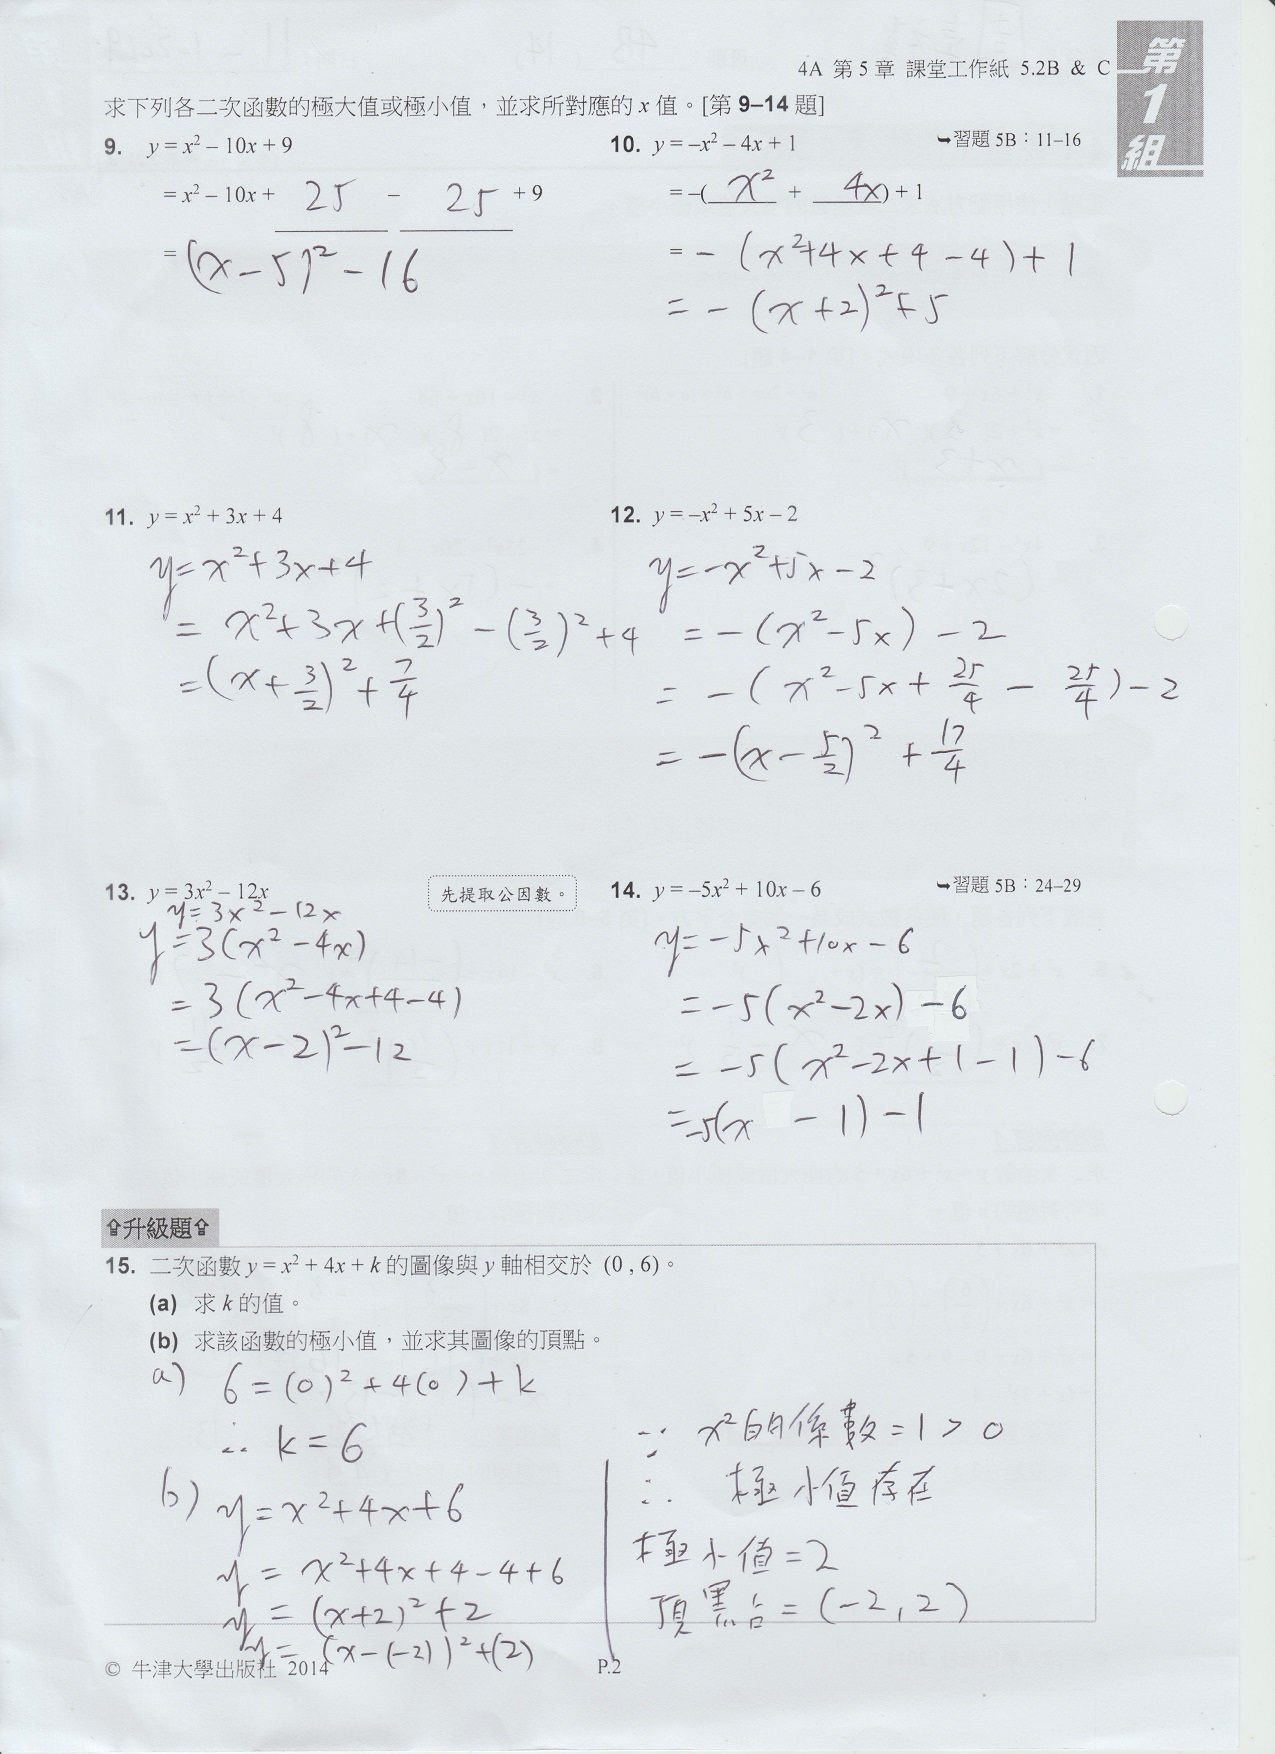 4A 第 5 章 課堂工作紙 5.2B & C
第
1
組
求下列各二次函數的極大值或極小值，並求所對應的 x 值。[第 9–14 題]
9. y = x² – 10x + 9
= x² – 10x + 25 – 25 + 9
= (x – 5)² – 16
10. y = –x² – 4x + 1 ➥習題 5B：11–16
= –( x² + 4x ) + 1
= – (x² + 4x + 4 – 4) + 1
= – (x + 2)² + 5
11. y = x² + 3x + 4
y = x² + 3x + 4
= x² + 3x + (3/2)² – (3/2)² + 4
= (x + 3/2)² + 7/4
12. y = –x² + 5x – 2
y = –x² + 5x – 2
= – (x² – 5x) – 2
= – (x² – 5x + 25/4 – 25/4) – 2
= – (x – 5/2)² + 17/4
13. y = 3x² – 12x 先提取公因數。
y = 3x² – 12x
y = 3(x² – 4x)
= 3(x² – 4x + 4 – 4)
= (x – 2)² – 12
14. y = –5x² + 10x – 6 ➥習題 5B：24–29
y = –5x² + 10x – 6
= –5(x² – 2x) – 6
= –5(x² – 2x + 1 – 1) – 6
= –5(x – 1) – 1
⇧升級題⇧
15. 二次函數 y = x² + 4x + k 的圖像與 y 軸相交於 (0 , 6)。
(a) 求 k 的值。
(b) 求該函數的極小值，並求其圖像的頂點。
a) 6 = (0)² + 4(0) + k
∴ k = 6
b) y = x² + 4x + 6
y = x² + 4x + 4 – 4 + 6
y = (x + 2)² + 2
y = (x – (–2))² + (2)
∵ x²的係數 = 1 > 0
∴ 極小值存在
極小值 = 2
頂點 = (–2, 2)
© 牛津大學出版社 2014
P.2